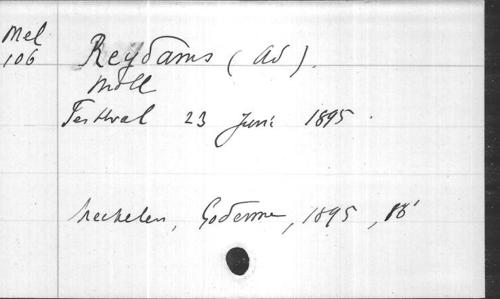 Mel
106
Reydams (Ad).
Moll
Festival 23 Juni 1895.
Mechelen, Godenne, 1895, 18'